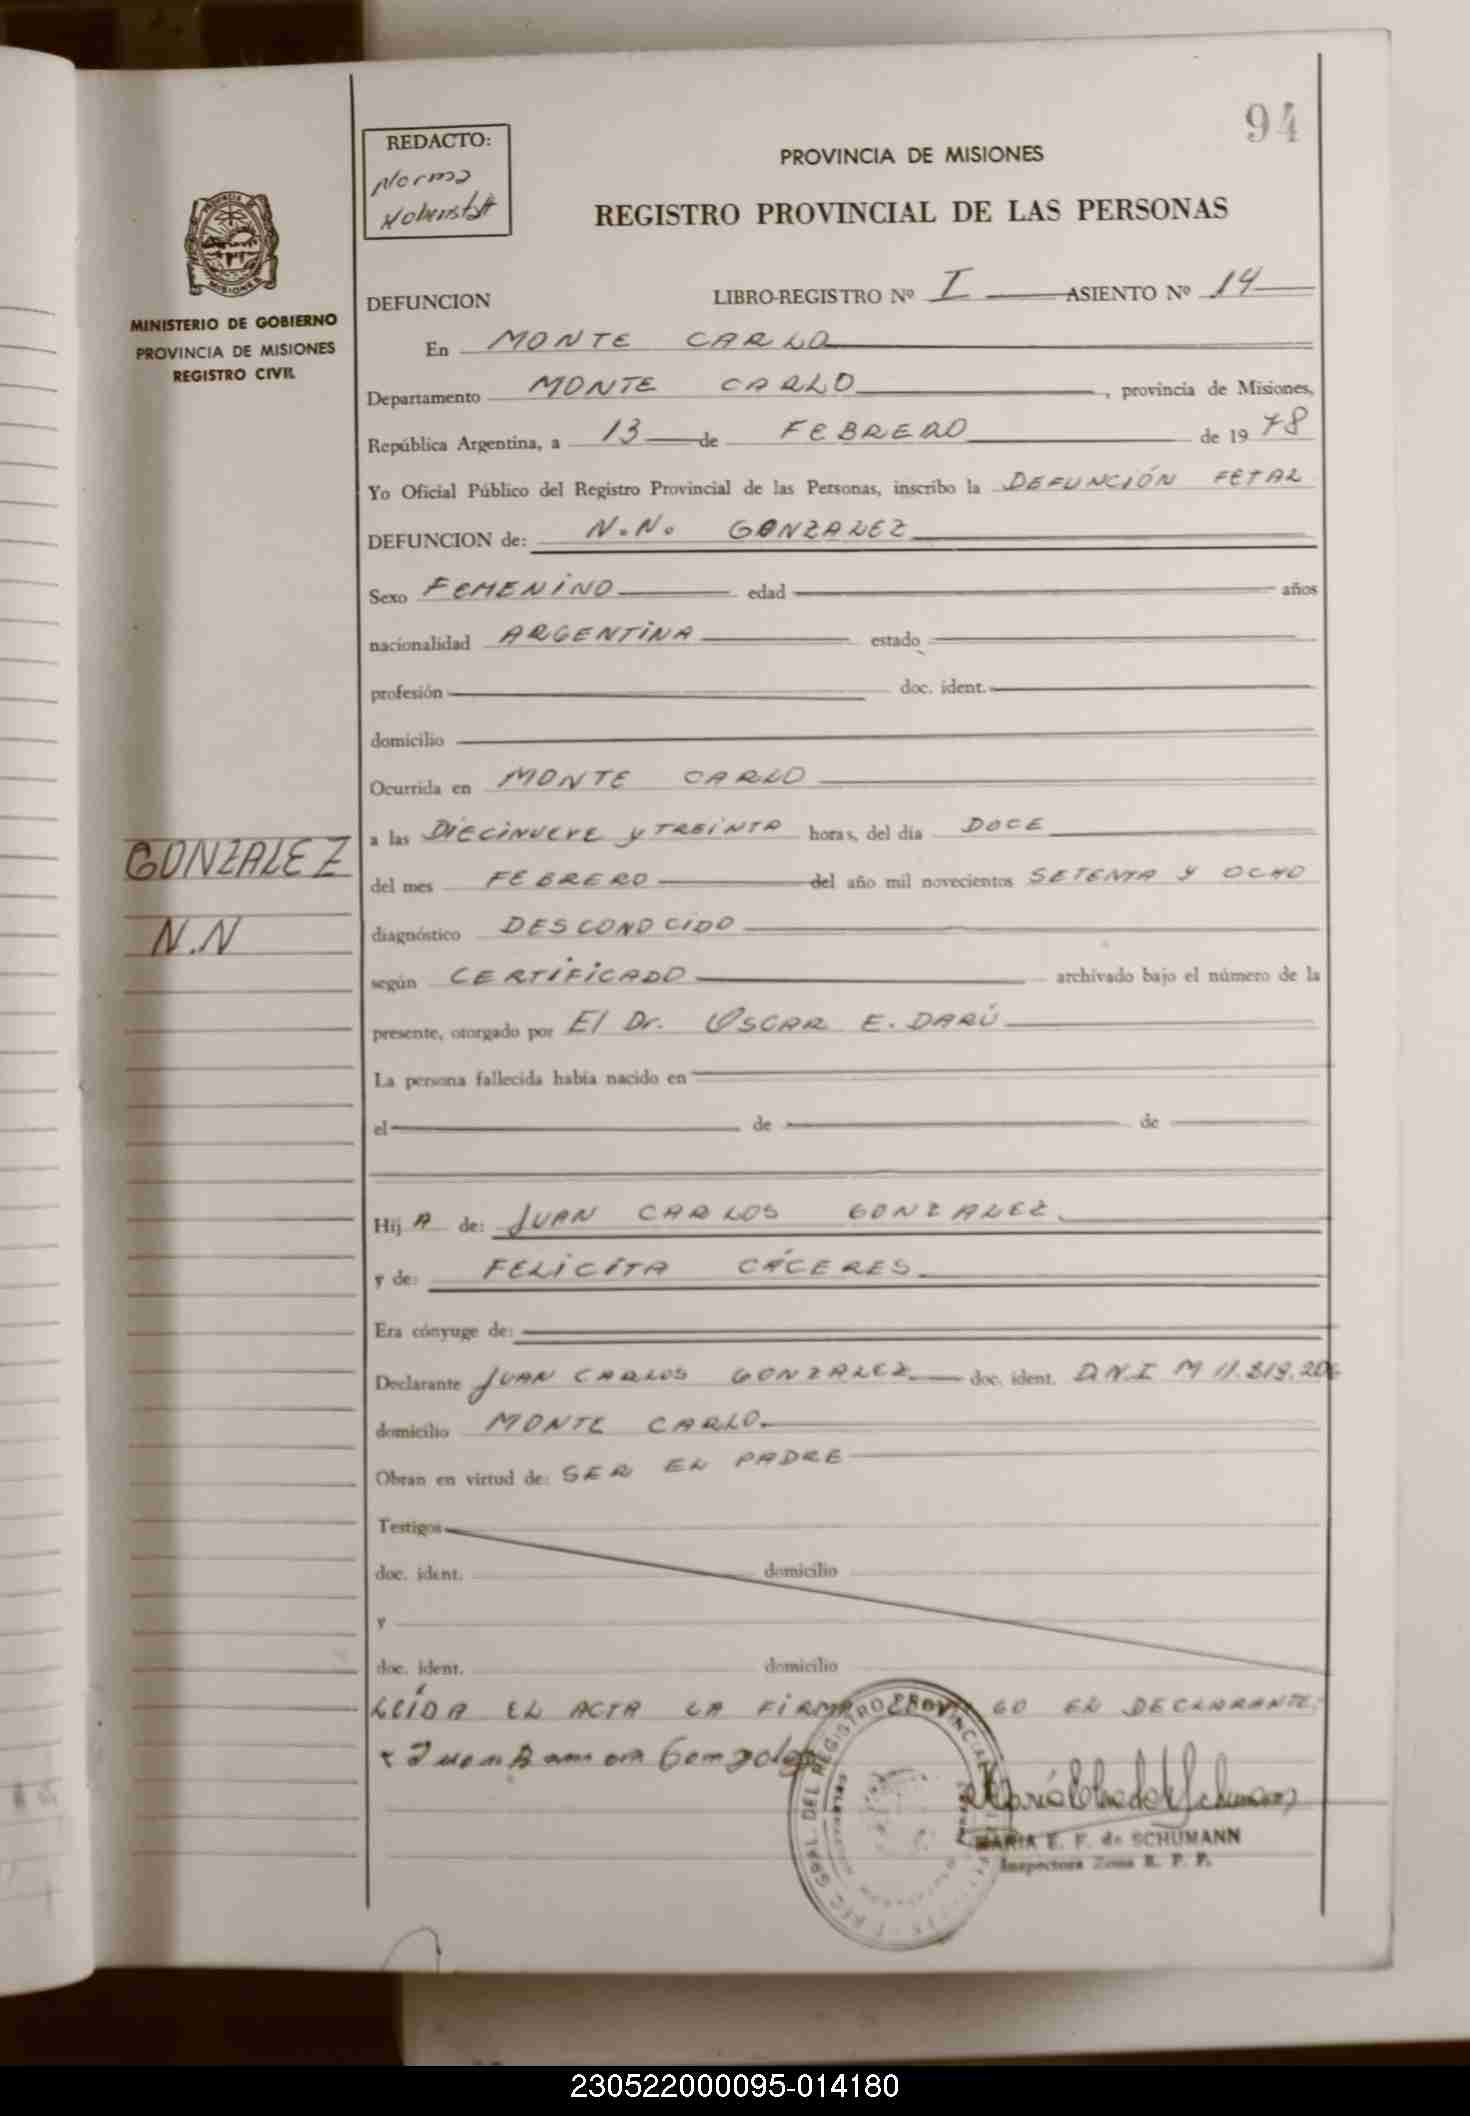 94
REDACTO:
Norma
PROVINCIA DE MISIONES
REGISTRO PROVINCIAL DE LAS PERSONAS
MINISTERIO DE GOBIERNO
PROVINCIA DE MISIONES
REGISTRO CIVIL
DEFUNCION LIBRO-REGISTRO Nº I ASIENTO Nº 14
En MONTE CARLO
Departamento MONTE CARLO, provincia de Misiones,
República Argentina, a 13 de FEBRERO de 1978
Yo Oficial Público del Registro Provincial de las Personas, inscribo la DEFUNCIÓN FETAL
DEFUNCION de: N.N. GONZALEZ
Sexo FEMENINO edad años
nacionalidad ARGENTINA estado
profesión doc. ident.
domicilio
Ocurrida en MONTE CARLO
a las DIECINUEVE Y TREINTA horas, del día DOCE
GONZALEZ
del mes FEBRERO del año mil novecientos SETENTA Y OCHO
N.N
diagnóstico DESCONOCIDO
según CERTIFICADO archivado bajo el número de la
presente, otorgado por El Dr. OSCAR E. DARÚ
La persona fallecida había nacido en
el de de
Hij A de: JUAN CARLOS GONZALEZ
y de: FELICITA CÁCERES
Era cónyuge de:
Declarante JUAN CARLOS GONZALEZ doc. ident. D.N.I M 11.319.206
domicilio MONTE CARLO.
Obran en virtud de: SER EL PADRE
Testigos
doc. ident. domicilio
y
doc. ident. domicilio
LEÍDA EL ACTA LA FIRMA GO EL DECLARANTE.
MARIA E. F. de SCHUMANN
Inspectora Zona R. P. P.
230522000095-014180